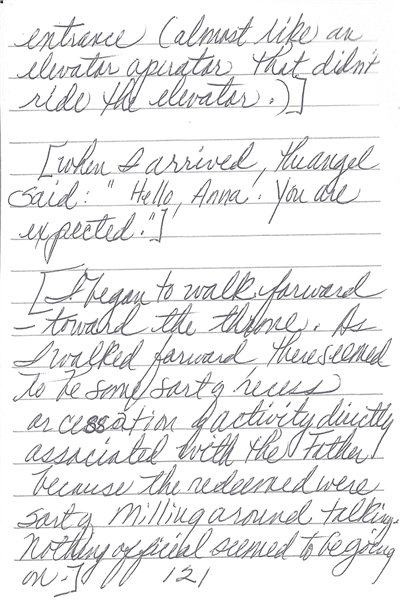 entrance (almost like an
elevator operator that didn't
ride the elevator.)]
[When I arrived, the angel
said: "Hello, Anna. You are
expected."]
[I began to walk forward
– toward the throne. As
I walked forward there seemed
to be some sort of recess
or cessation of activity directly
associated with the Father
because the redeemed were
sort of milling around talking.
Nothing official seemed to be going
on.]
121